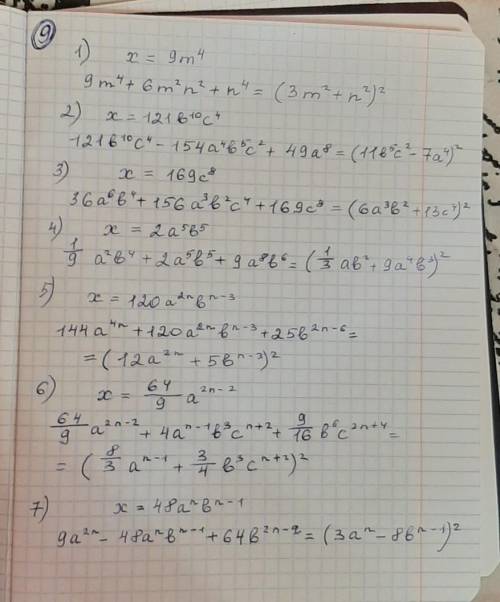 9
1) x = 9m⁴
9m⁴ + 6m²n² + n⁴ = (3m² + n²)²
2) x = 121в¹⁰c⁴
121в¹⁰c⁴ - 154a⁴в⁵c² + 49a⁸ = (11в⁵c² - 7a⁴)²
3) x = 169c⁸
36a⁶в⁴ + 156a³в²c⁴ + 169c⁸ = (6a³в² + 13c⁴)²
4) x = 2a⁵в⁵
1/9 a²в⁴ + 2a⁵в⁵ + 9a⁸в⁶ = (1/3 aв² + 9a⁴в³)²
5) x = 120a²ⁿвⁿ⁻³
144a⁴ⁿ + 120a²ⁿвⁿ⁻³ + 25в²ⁿ⁻⁶ =
= (12a²ⁿ + 5вⁿ⁻³)²
6) x = 64/9 a²ⁿ⁻²
64/9 a²ⁿ⁻² + 4aⁿ⁻¹в³cⁿ⁺² + 9/16 в⁶c²ⁿ⁺⁴ =
= (8/3 aⁿ⁻¹ + 3/4 в³cⁿ⁺²)²
7) x = 48aⁿвⁿ⁻¹
9a²ⁿ - 48aⁿвⁿ⁻¹ + 64в²ⁿ⁻² = (3aⁿ - 8вⁿ⁻¹)²